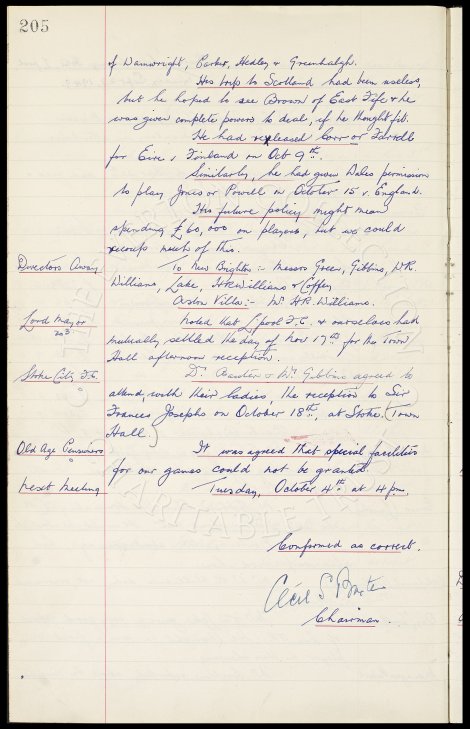 205
of Wainwright, Parker, Hedley & Greenhalgh.
His trip to Scotland had been useless,
but he hoped to see Brown of East Fife & he
was given complete powers to deal, if he thought fit.
He had released Corr or Farrell
for Eire v Finland on Oct 9th.
Similarly, he had given Wales permission
to play Jones or Powell on October 15 v. England.
His future policy might mean
spending £60,000 on players, but we could
recoup much of this.
Directors Away
To New Brighton :- Messrs Green, Gibbins, W.R.
Williams, Lake, H.R. Williams & Coffey
Aston Villa :- Mr H.R. Williams.
Lord Mayor
203
Noted that L'pool F.C. & ourselves had
mutually settled the day of Nov 17th for the Town
Hall afternoon reception.
Stoke City F.C.
Dr. Baxter & Mr Gibbins agreed to
attend, with their ladies, the reception to Sir
Francis Josephs on October 18th, at Stoke. (Town
Hall.)
Old Age Pensioners
It was agreed that special facilities
for our games could not be granted
Next Meeting
Tuesday, October 4th at 4 pm.
Confirmed as correct.
Cecil S Baxter
Chairman.
CHARITABLE